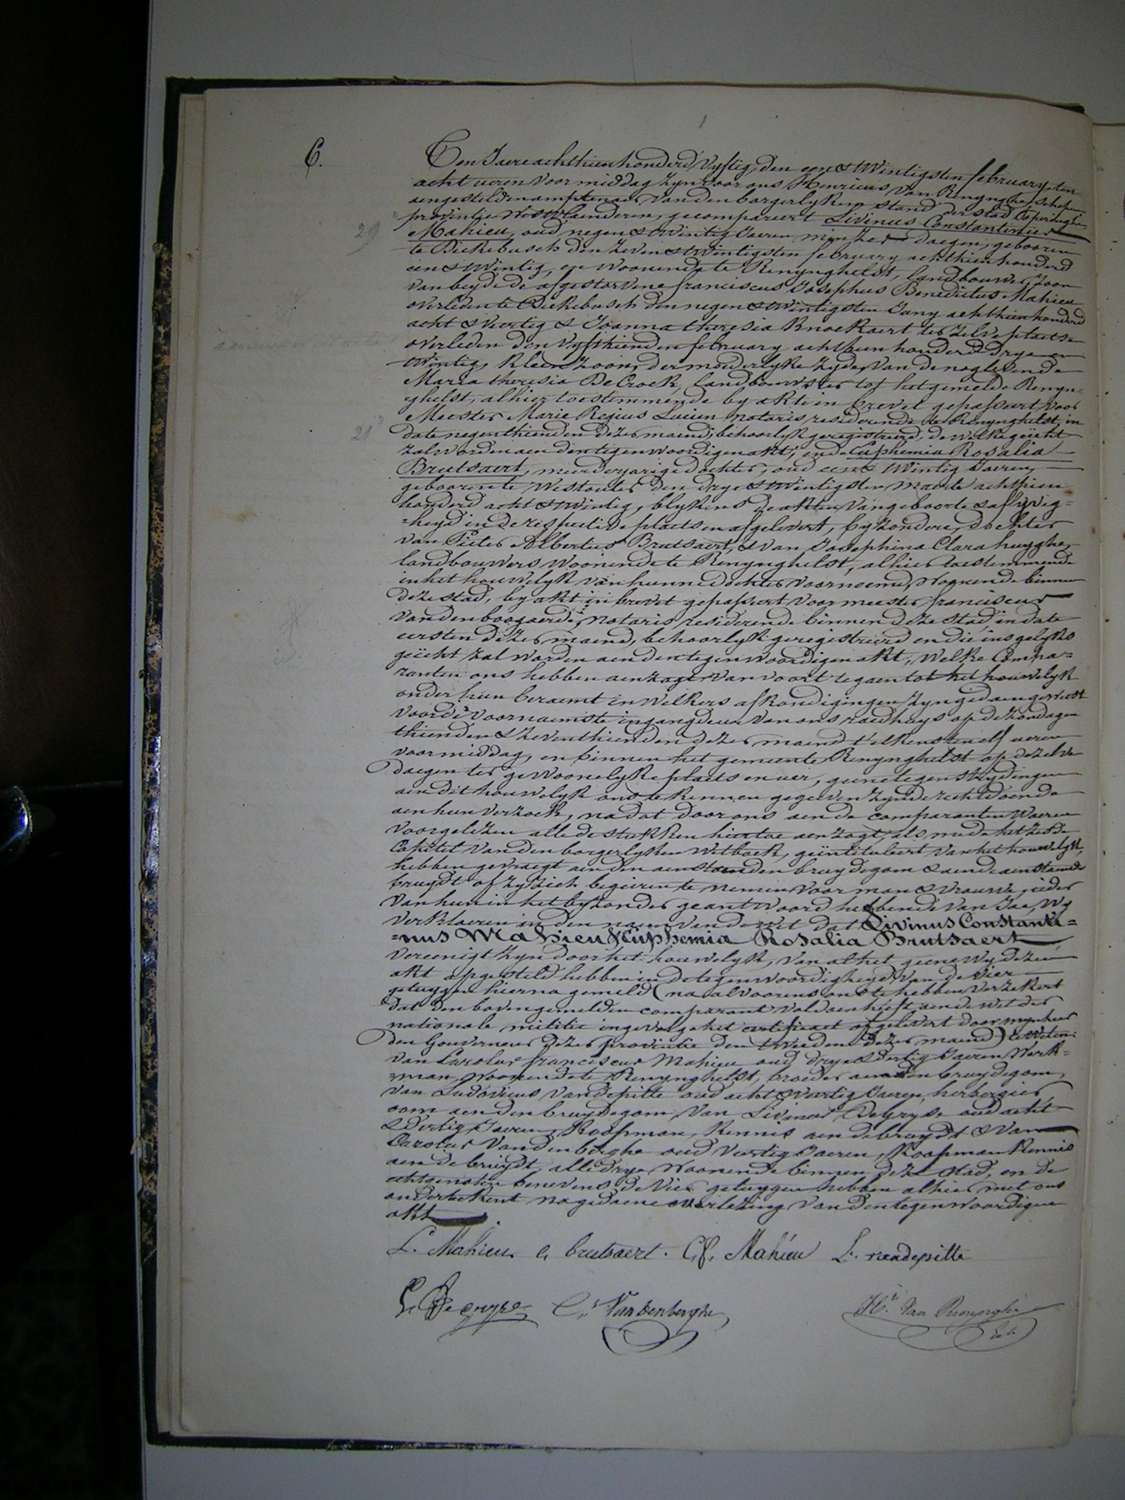 6.
Ten Jaere achthien honderd vyftig, den een & twintigsten february ten
acht uren voormiddag zyn voor ons Henricus Van Renynghe, schepen
aengestelden amptenaer van den borgerlyken stand der stad Poperinghe
provintie Westvlaenderen, gecompareert Livinus Constantinus
29 Mahieu, oud negen & twintig Jaeren, min zes daegen, geboren
te Dickebusch den zeven & twintigsten february achthien honderd
een & twintig, en woonende te Renynghelst, landbouwer, zoon
van beyde de afgestorvene franciscus Josephus Benedictus Mahieu
overleden te Dickebusch den negen & twintigsten Juny achthien honderd
acht & veertig & Joanna theresia Knockaert ter zelve plaetse
overleden den vyfthienden february achthien honderd drye en
twintig, kleen zoon, der moederlyke zyde, van de noglevende
Maria theresia De Crock, landbouwster tot het gemelde Renyn-
ghelst, alhier toestemmende by akte in brevet gepasseert voor
Meester Marie Regius Lucien notaris residerende te Renynghelst, in
date negenthienden dezer maend, behoorlyk geregistreerd, de welke geëcht
21 zal worden aen den tegenwoordigen akt; ende Euphemia Rosalia
Brutsaert, meerderjarige dochter, oud een & twintig Jaeren,
geboren te Westouter den drye & twintigsten Maerte achthien
honderd acht & twintig, blykens de akten van geboorte & aflyvig-
heyd in de respective plaetsen afgelevert, byzondere dochter
van Pieter Albertus Brutsaert, & van Josephina Clara huyghe,
landbouwers woonende te Renynghelst, alhier toestemmende
in het houwelyk van hunne dochter voornoemd, woonende binnen
deze stad, by akt in brevet gepasseert voor meester franciscus
Vandenboogaerde notaris residerende binnen deze stad in date
eersten dezer maend, behoorlyk geregistreerd en die insgelyks
geëcht zal worden aen den tegenwoordigen akt, welke Compa-
ranten ons hebben aenzogt van voort te gaen tot het houwelyk
onder hun beraemt en welkers afkondigingen zyn gedaen geweest
voor de voornaemste ingangdeur van ons raedhuys op de zondagen
thienden & zeventhienden dezer maend telkens ten elf uren
voormiddag, en binnen het gemeente Renynghelst op dezelve
daegen ter gewoonelyke plaets en uer, geene tegenstrydingen
aen dit houwelyk ons te kennen gegeven zynde recht doende
aen hun verzoek, na dat door ons aen de comparanten waeren
voorgelezen alle de stukken hiertoe aenzogt, als mede het zesde
Capittel van den borgerlyken Wetboek, geïntituleert van het houwelyk,
hebben gevraegt aen den aenstaenden bruydegom & aen de aenstaende
bruydt of zy zich begeiren te nemen voor man & vrouwe, ieder
van hun in het byzonder geantwoord hebbende van Jae, Wy
verklaeren in den naem van de wet dat Livinus Constanti-
nus Mahieu & Euphemia Rosalia Brutsaert
vereenigt zyn door het houwelyk, van al het geene wy dezen
akt opgesteld hebben in de tegenwoordigheyd van de vier
getuygen hierna gemeld (na alvoorens ons te hebben verzekert
dat den bovengemelden comparant voldaen heeft aen de wet der
nationale militie ingevolge het certificaet afgelevert door mynheer
den Gouverneur dezer provintie den tweeden dezer maend) te weten:
van Carolus franciscus Mahieu oud drye & dertig Jaeren, werk-
man, woonende te Renynghelst, broeder aen den bruydegom,
van Ludovicus Vandepitte oud acht & veertig Jaeren, herbergier,
oom aen den bruydegom, van Livinus Degryse oud acht
& dertig Jaeren, Koopman, Kennis aen de bruydt & van
Carolus Vandenberghe oud veertig Jaeren, Koopman Kennis
aen de bruydt, alle drye woonende binnen deze stad, en de
echtgenoten benevens de vier getuygen hebben alhier met ons
onderteekent na gedaene overlezing van den tegenwoordigen
akt
L. Mahieu e. brutsaert. C. f. Mahieu L. vandepitte
L. De gryse C. Vandenberghe Hs. Van Renynghe